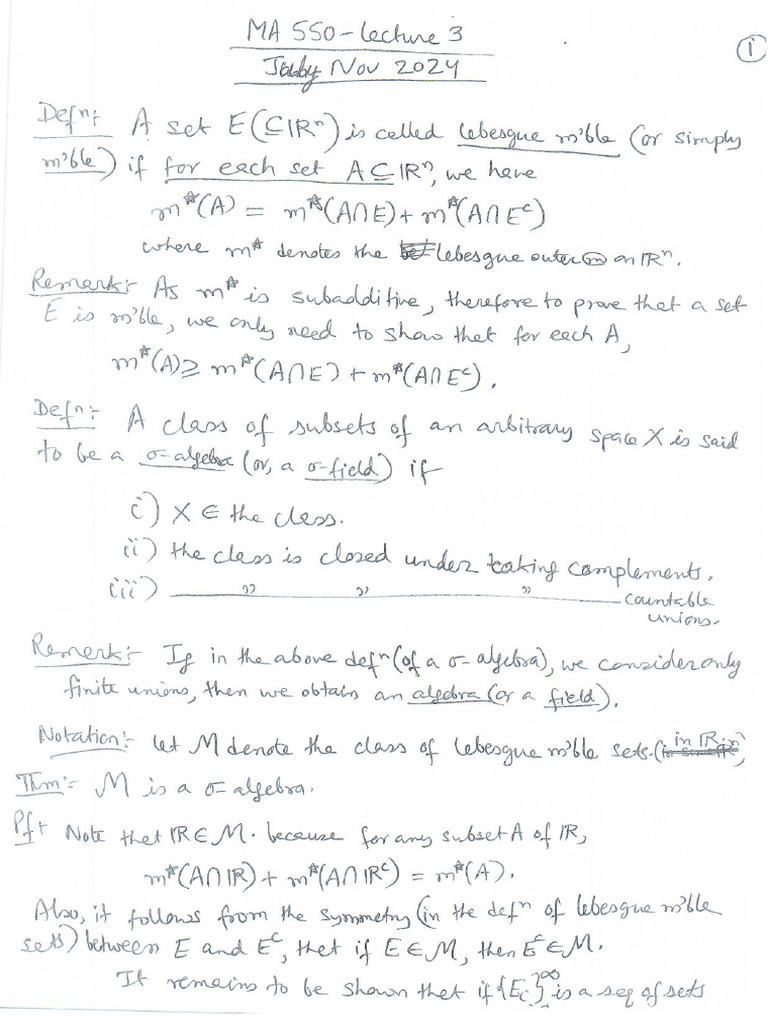 MA 550 - Lecture 3
①
Nov 2024
Defⁿ:- A set E(⊆ℝⁿ) is called Lebesgue m'ble (or simply
m'ble) if for each set A⊆ℝⁿ, we have
m*(A) = m*(A∩E) + m*(A∩Eᶜ)
where m* denotes the Lebesgue outer ⓜ on ℝⁿ.
Remark:- As m* is subadditive, therefore to prove that a set
E is m'ble, we only need to show that for each A,
m*(A) ≥ m*(A∩E) + m*(A∩Eᶜ).
Defⁿ:- A class of subsets of an arbitrary space X is said
to be a σ-algebra (or, a σ-field) if
i) X ∈ the class.
(ii) the class is closed under taking complements.
(iii) ——— " ——— " ——— " ——— countable
unions.
Remark:- If in the above defⁿ (of a σ-algebra), we consider only
finite unions, then we obtain an algebra (or a field).
Notation:- Let M denote the class of Lebesgue m'ble sets.
Thm:- M is a σ-algebra.
Pf:- Note that ℝ∈M. because for any subset A of ℝ,
m*(A∩ℝ) + m*(A∩ℝᶜ) = m*(A).
Also, it follows from the symmetry (in the defⁿ of Lebesgue m'ble
sets) between E and Eᶜ, that if E∈M, then Eᶜ∈M.
It remains to be shown that if {Eᵢ}^∞ is a seq of sets